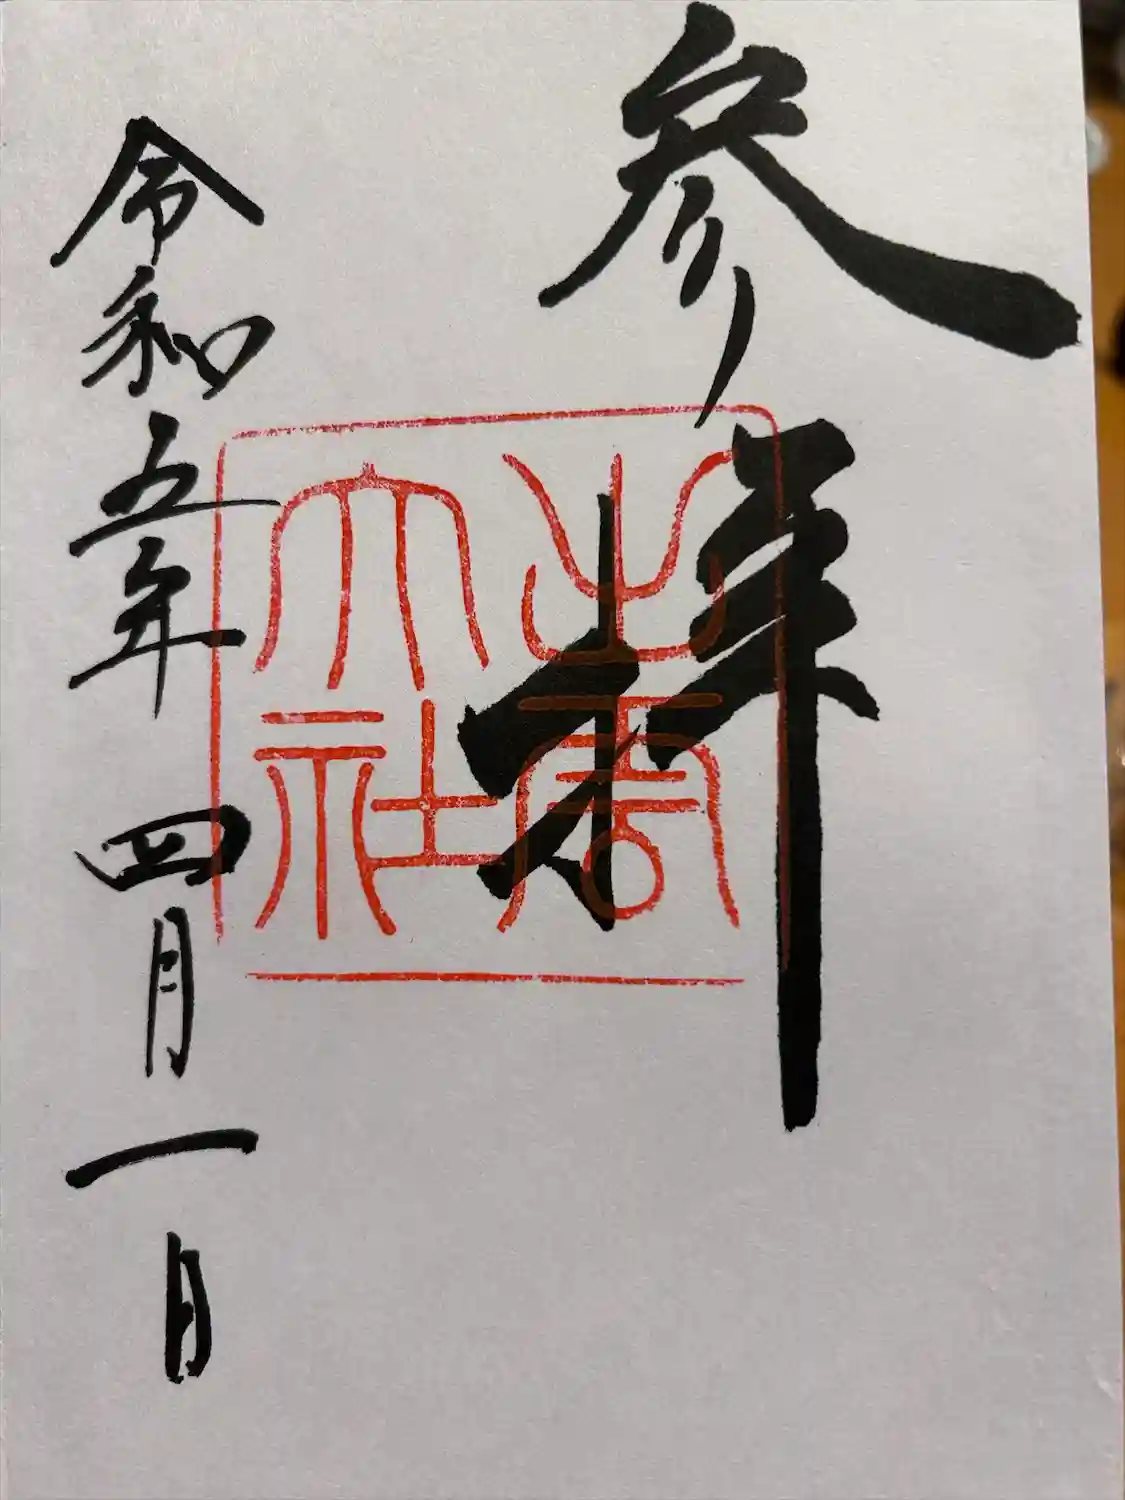 参拝
出雲
大社
令和五年四月一日